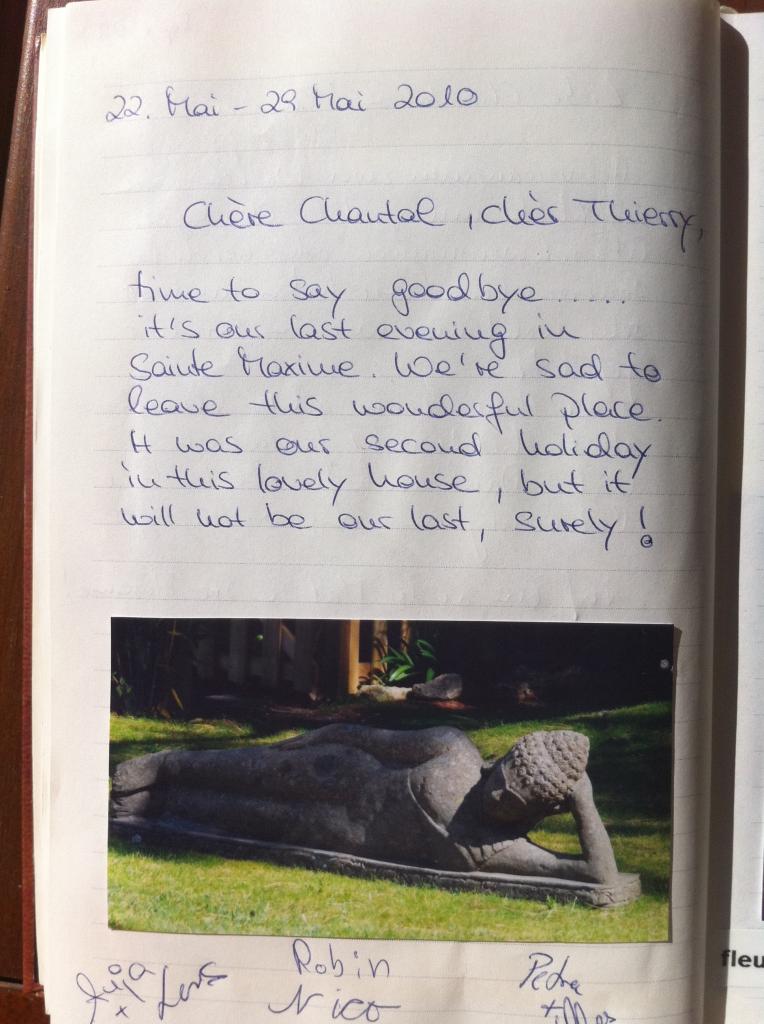 22. Mai - 29 Mai 2010
Chère Chantal, chèr Thierry,
time to say goodbye .....
it's our last evening in
Sainte Maxime. We're sad to
leave this wonderful place.
It was our second holiday
in this lovely house, but it
will not be our last, surely!
Robin
Petra
Nico
fleu